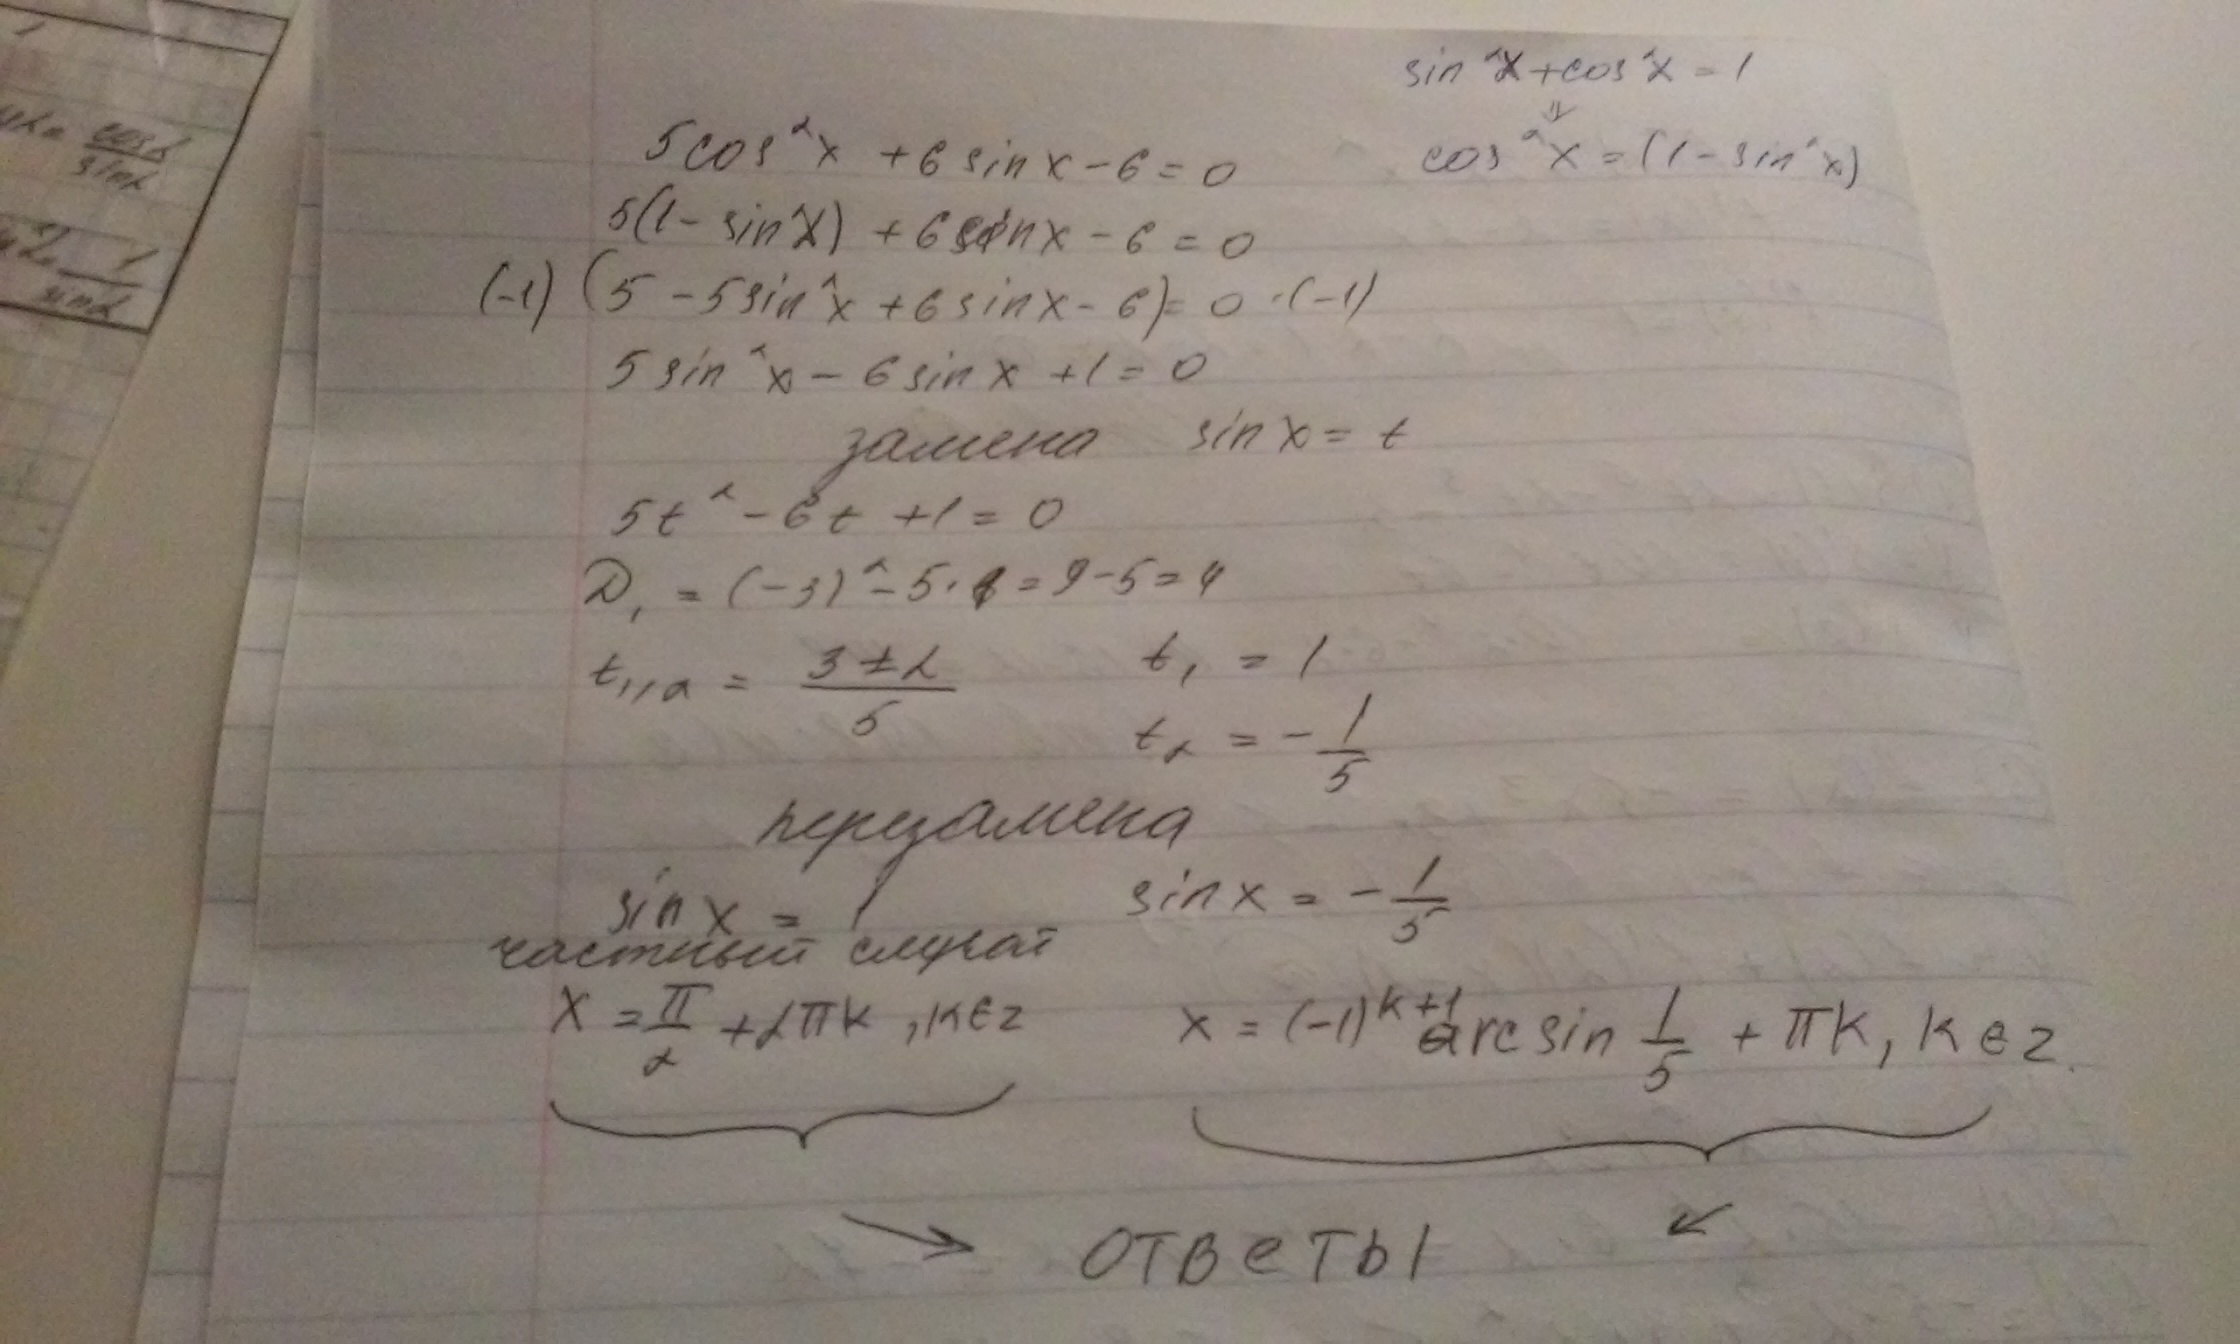 sin²x + cos²x = 1
⇓
cos²x = (1 - sin²x)
5cos²x + 6 sinx - 6 = 0
5(1 - sin²x) + 6 sinx - 6 = 0
(-1) (5 - 5sin²x + 6 sinx - 6) = 0 · (-1)
5 sin²x - 6 sinx + 1 = 0
замена sin x = t
5t² - 6t + 1 = 0
D₁ = (-3)² - 5·1 = 9 - 5 = 4
t₁,₂ = (3 ± 2)/5 t₁ = 1
t₂ = - 1/5
перезамена
sin x = 1 sin x = - 1/5
частный случай
x = π/2 + 2πk, k∈z x = (-1)^(k+1) arcsin 1/5 + πk, k∈z
ответы
cosα/sinα
1/sinα